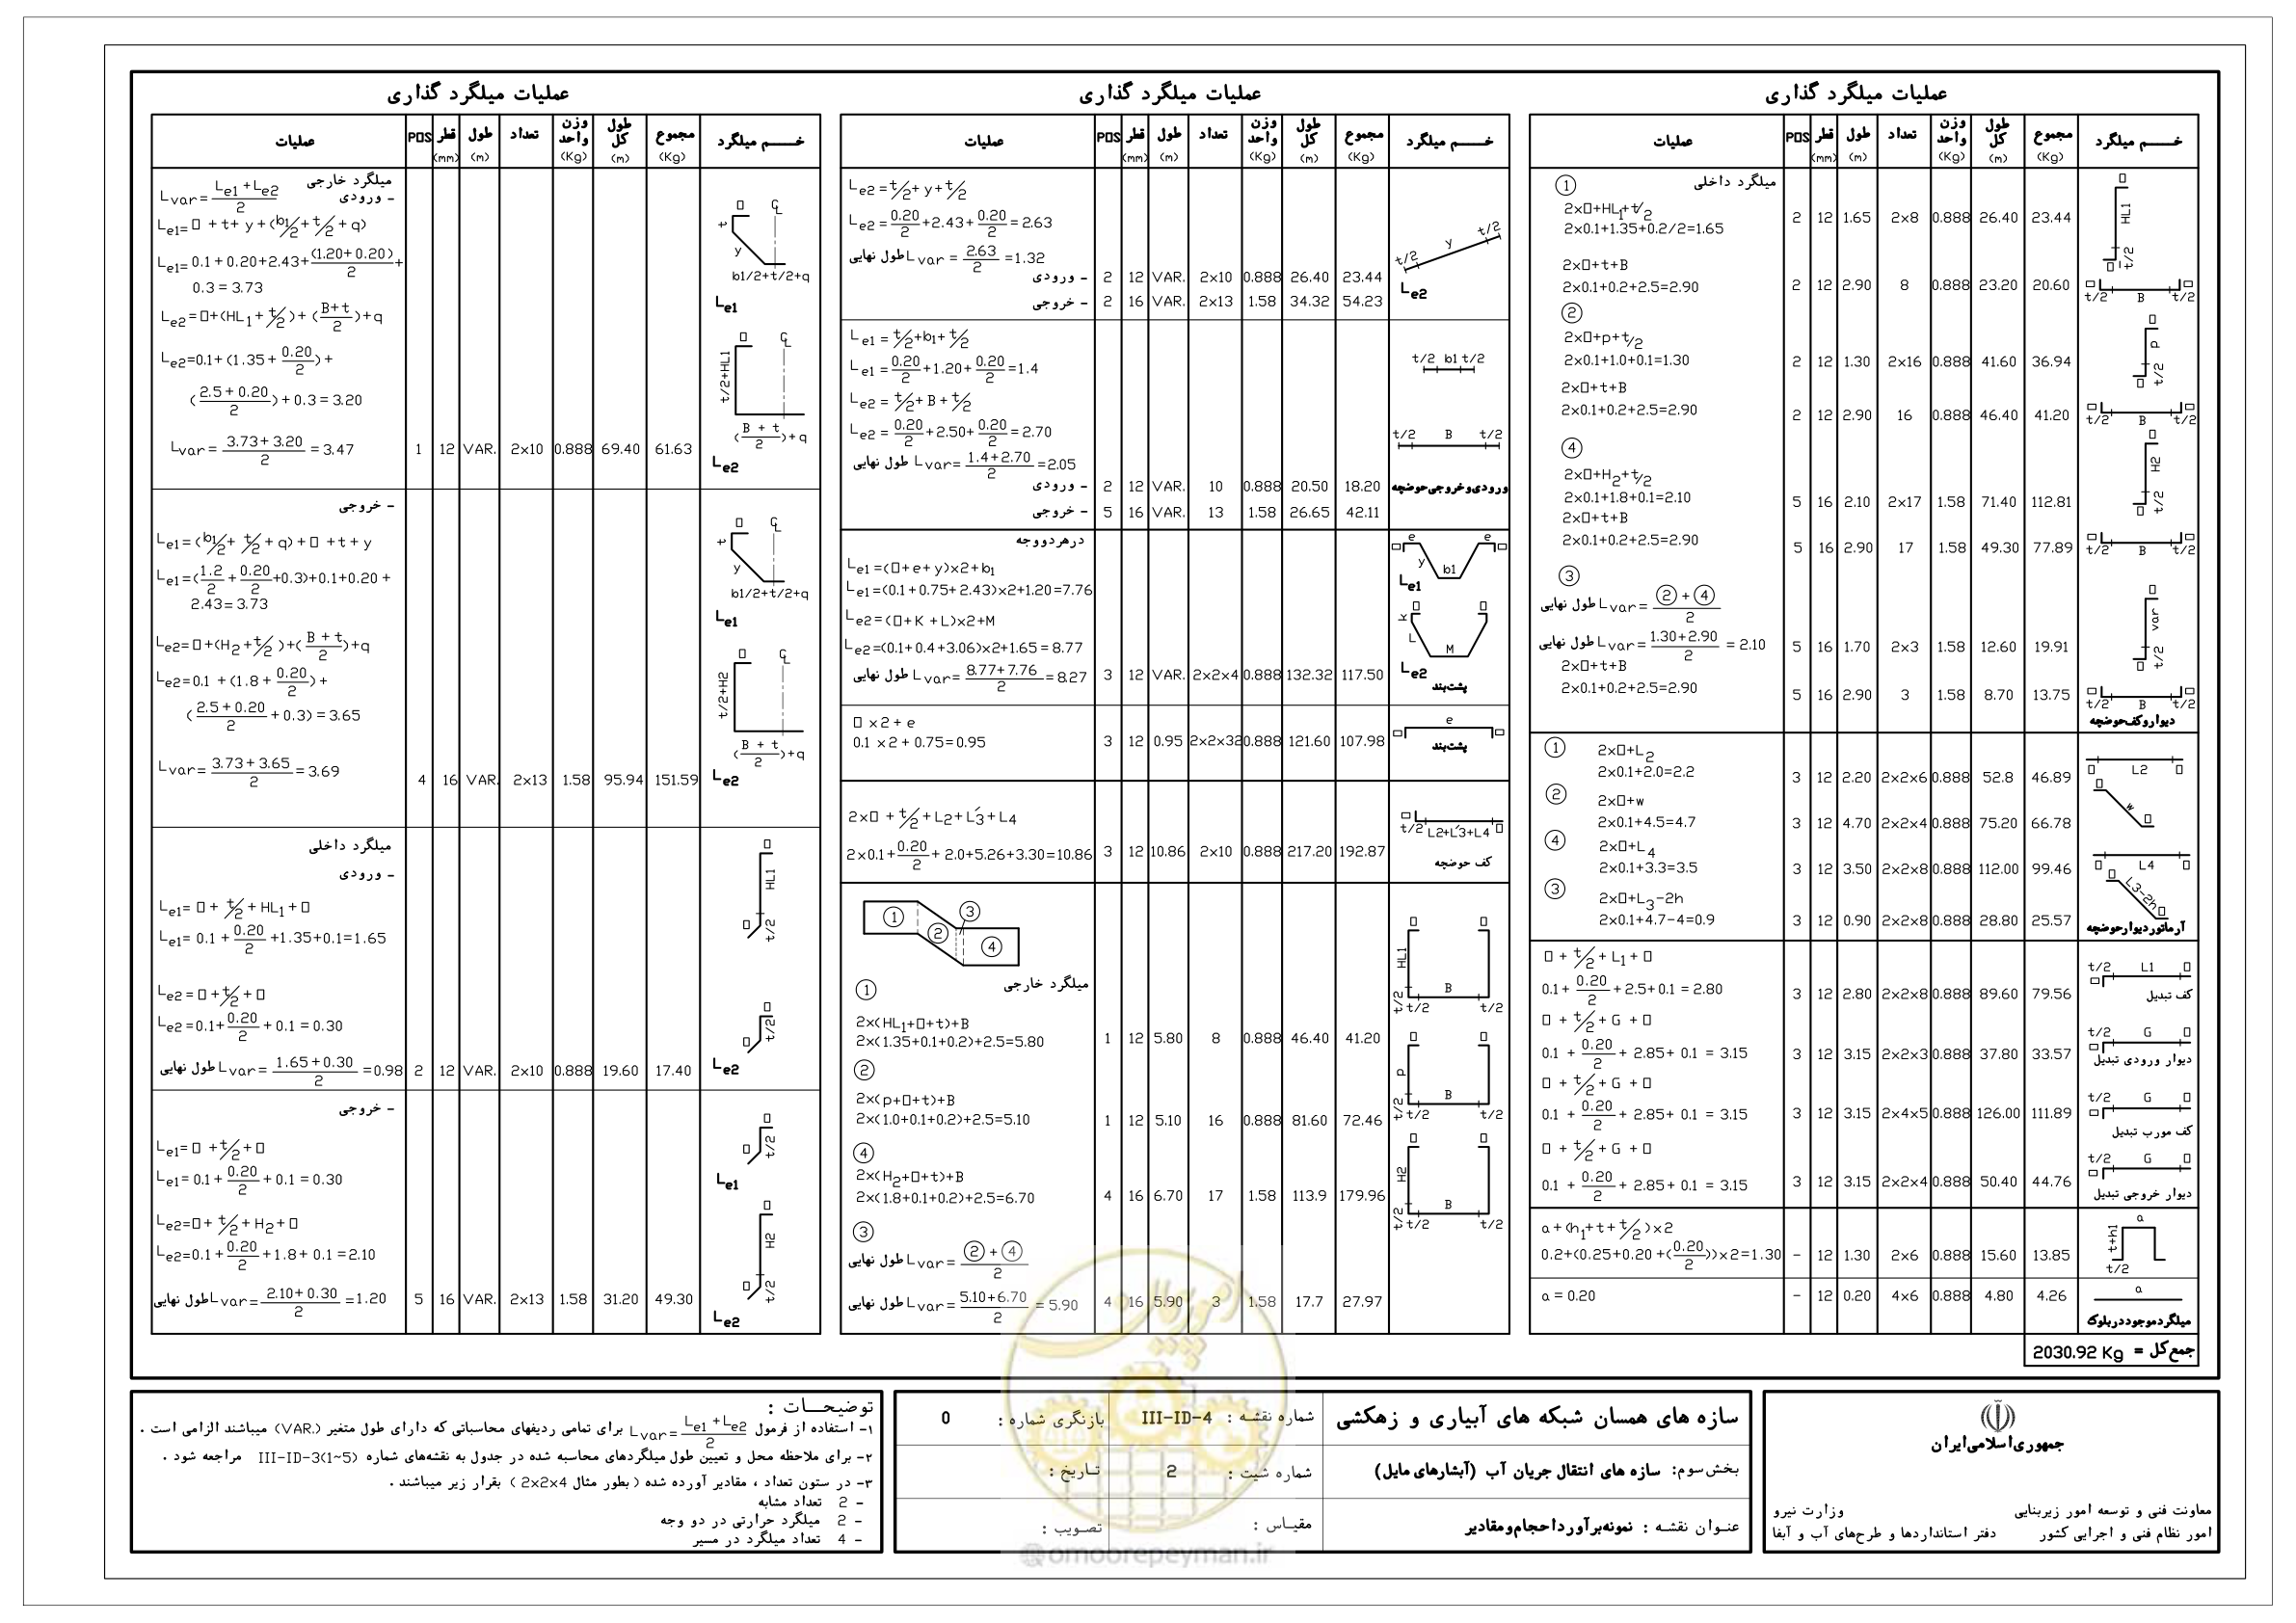 عملیات میلگرد گذاری
عملیات POS قطر (mm) طول (m) تعداد وزن واحد (Kg) طول کل (m) مجموع (Kg) خـــم میلگرد
میلگرد خارجی
- ورودی
Lvar = (Le1 + Le2)/2
Le1= □ + t+ y + (b1/2 + t/2 + q)
Le1= 0.1 + 0.20+2.43+(1.20+0.20)/2+
0.3 = 3.73
Le2 = □+(HL1 + t/2) + (B+t/2)+q
Le2=0.1+ (1.35 + 0.20/2) +
(2.5 + 0.20/2) + 0.3 = 3.20
Lvar = 3.73+3.20/2 = 3.47 1 12 VAR. 2x10 0.888 69.40 61.63
t □ CL y b1/2+t/2+q
Le1
□ CL t/2+HL1 (B + t/2)+q
Le2
- خروجی
Le1 = (b1/2+ t/2 + q) + □ + t + y
Le1 =(1.2/2 + 0.20/2 +0.3)+0.1+0.20 +
2.43 = 3.73
Le2= □ +(H2 + t/2) +(B + t/2)+q
Le2=0.1 + (1.8 + 0.20/2) +
(2.5 + 0.20/2 + 0.3) = 3.65
Lvar = 3.73 + 3.65/2 = 3.69 4 16 VAR. 2x13 1.58 95.94 151.59
t □ CL y b1/2+t/2+q
Le1
□ CL t/2+H2 (B + t/2)+q
Le2
میلگرد داخلی
- ورودی
Le1= □ + t/2 + HL1 + □
Le1= 0.1 + 0.20/2 +1.35+0.1=1.65
□ HL1 □ t/2
Le2 = □ + t/2 + □
Le2 =0.1+ 0.20/2 + 0.1 = 0.30
طول نهایی Lvar = 1.65 + 0.30/2 =0.98 2 12 VAR. 2x10 0.888 19.60 17.40
□ □ t/2
Le2
- خروجی
Le1= □ + t/2 + □
Le1= 0.1 + 0.20/2 + 0.1 = 0.30
□ □ t/2
Le1
Le2=□+ t/2 + H2 + □
Le2=0.1 + 0.20/2 + 1.8 + 0.1 =2.10
طول نهایی Lvar = 2.10 + 0.30/2 =1.20 5 16 VAR. 2x13 1.58 31.20 49.30
□ H2 □ t/2
Le2
عملیات میلگرد گذاری
عملیات POS قطر (mm) طول (m) تعداد وزن واحد (Kg) طول کل (m) مجموع (Kg) خـــم میلگرد
Le2 = t/2+ y + t/2
Le2 = 0.20/2 +2.43+ 0.20/2 = 2.63
طول نهایی Lvar = 2.63/2 =1.32
- ورودی 2 12 VAR. 2x10 0.888 26.40 23.44
- خروجی 2 16 VAR. 2x13 1.58 34.32 54.23
t/2 y t/2
Le2
Le1 = t/2+b1+ t/2
Le1 = 0.20/2 +1.20+ 0.20/2 =1.4
Le2 = t/2+ B + t/2
Le2 = 0.20/2 +2.50+ 0.20/2 =2.70
طول نهایی Lvar= 1.4+2.70/2 =2.05
- ورودی 2 12 VAR. 10 0.888 20.50 18.20
- خروجی 5 16 VAR. 13 1.58 26.65 42.11
t/2 b1 t/2
t/2 B t/2
ورودی و خروجی حوضچه
درهردووجه
Le1 =(□ + e + y)x2 + b1
Le1 =(0.1 + 0.75+ 2.43)x2+1.20=7.76
Le2 =(□ + K + L)x2+M
Le2 =(0.1+ 0.4 +3.06)x2+1.65 = 8.77
طول نهایی Lvar= 8.77+7.76/2 = 8.27 3 12 VAR. 2x2x4 0.888 132.32 117.50
□ e e □ y b1
Le1
□ □ k L M
Le2
پشت‌بند
□ x2 + e
0.1 x2 + 0.75=0.95 3 12 0.95 2x2x32 0.888 121.60 107.98
e □ □
پشت‌بند
2x□ + t/2 + L2 + L'3 + L4
2x0.1+ 0.20/2 + 2.0+5.26+3.30=10.86 3 12 10.86 2x10 0.888 217.20 192.87
□ t/2 L2+L'3+L4 □
کف حوضچه
① ② ③ ④
میلگرد خارجی
①
2x(HL1+□+t)+B
2x(1.35+0.1+0.2)+2.5=5.80 1 12 5.80 8 0.888 46.40 41.20
②
2x(p+□+t)+B
2x(1.0+0.1+0.2)+2.5=5.10 1 12 5.10 16 0.888 81.60 72.46
④
2x(H2+□+t)+B
2x(1.8+0.1+0.2)+2.5=6.70 4 16 6.70 17 1.58 113.9 179.96
③
طول نهایی Lvar = ② + ④/2
طول نهایی Lvar = 5.10+6.70/2 = 5.90 4 16 5.90 3 1.58 17.7 27.97
□ □ HL1 B t/2 t/2 t/2
□ □ p B t/2 t/2 t/2
□ □ H2 B t/2 t/2 t/2
عملیات میلگرد گذاری
عملیات POS قطر (mm) طول (m) تعداد وزن واحد (Kg) طول کل (m) مجموع (Kg) خـــم میلگرد
① میلگرد داخلی
2x□+HL1+t/2
2x0.1+1.35+0.2/2=1.65 2 12 1.65 2x8 0.888 26.40 23.44
2x□+t+B
2x0.1+0.2+2.5=2.90 2 12 2.90 8 0.888 23.20 20.60
②
2x□+p+t/2
2x0.1+1.0+0.1=1.30 2 12 1.30 2x16 0.888 41.60 36.94
2x□+t+B
2x0.1+0.2+2.5=2.90 2 12 2.90 16 0.888 46.40 41.20
④
2x□+H2+t/2
2x0.1+1.8+0.1=2.10 5 16 2.10 2x17 1.58 71.40 112.81
2x□+t+B
2x0.1+0.2+2.5=2.90 5 16 2.90 17 1.58 49.30 77.89
③
طول نهایی Lvar = ② + ④/2
طول نهایی Lvar = 1.30+2.90/2 = 2.10 5 16 1.70 2x3 1.58 12.60 19.91
2x□+t+B
2x0.1+0.2+2.5=2.90 5 16 2.90 3 1.58 8.70 13.75
□ HL1 □ t/2
□ t/2 B t/2 □
□ p □ t/2
□ t/2 B t/2 □
□ H2 □ t/2
□ t/2 B t/2 □
□ var □ t/2
□ t/2 B t/2 □
دیوار و کف حوضچه
① 2x□+L2
2x0.1+2.0=2.2 3 12 2.20 2x2x6 0.888 52.8 46.89
② 2x□+w
2x0.1+4.5=4.7 3 12 4.70 2x2x4 0.888 75.20 66.78
④ 2x□+L4
2x0.1+3.3=3.5 3 12 3.50 2x2x8 0.888 112.00 99.46
③ 2x□+L3-2h
2x0.1+4.7-4=0.9 3 12 0.90 2x2x8 0.888 28.80 25.57
□ L2 □
□ w □
□ L4 □
□ L3-2h □
آرماتور دیوار حوضچه
□ + t/2 + L1 + □
0.1 + 0.20/2 + 2.5+ 0.1 = 2.80 3 12 2.80 2x2x8 0.888 89.60 79.56
t/2 L1 □ □
کف تبدیل
□ + t/2 + G + □
0.1 + 0.20/2 + 2.85+ 0.1 = 3.15 3 12 3.15 2x2x3 0.888 37.80 33.57
t/2 G □ □
دیوار ورودی تبدیل
□ + t/2 + G + □
0.1 + 0.20/2 + 2.85+ 0.1 = 3.15 3 12 3.15 2x4x5 0.888 126.00 111.89
t/2 G □ □
کف مورب تبدیل
□ + t/2 + G + □
0.1 + 0.20/2 + 2.85+ 0.1 = 3.15 3 12 3.15 2x2x4 0.888 50.40 44.76
t/2 G □ □
دیوار خروجی تبدیل
a + (h1 + t + t/2)x2
0.2+(0.25+0.20 +(0.20/2))x2=1.30 - 12 1.30 2x6 0.888 15.60 13.85
a t+h1 t/2
a = 0.20 - 12 0.20 4x6 0.888 4.80 4.26
a
میلگرد موجود در بلوک
جمع کل = 2030.92 Kg
توضیحــات :
۱- استفاده از فرمول Lvar = Le1 + Le2/2 برای تمامی ردیفهای محاسباتی که دارای طول متغیر (VAR.) میباشند الزامی است .
۲- برای ملاحظه محل و تعیین طول میلگردهای محاسبه شده در جدول به نقشه‌های شماره III-ID-3(1~5) مراجعه شود .
۳- در ستون تعداد ، مقادیر آورده شده ( بطور مثال 2x2x4 ) بقرار زیر میباشند .
- 2 تعداد مشابه
- 2 میلگرد حرارتی در دو وجه
- 4 تعداد میلگرد در مسیر
سازه های همسان شبکه های آبیاری و زهکشی
شماره نقشه : III-ID-4
بازنگری شماره : 0
بخش سوم: سازه های انتقال جریان آب (آبشارهای مایل)
شماره شیت : 2
تـاریخ :
عنـوان نقشـه : نمونه برآورد احجام و مقادیر
مقیـاس :
تصـویب :
امور پیمان
@omoorepeyman.ir
جمهوری اسلامی ایران
معاونت فنی و توسعه امور زیربنایی وزارت نیرو
امور نظام فنی و اجرایی کشور دفتر استانداردها و طرح‌های آب و آبفا